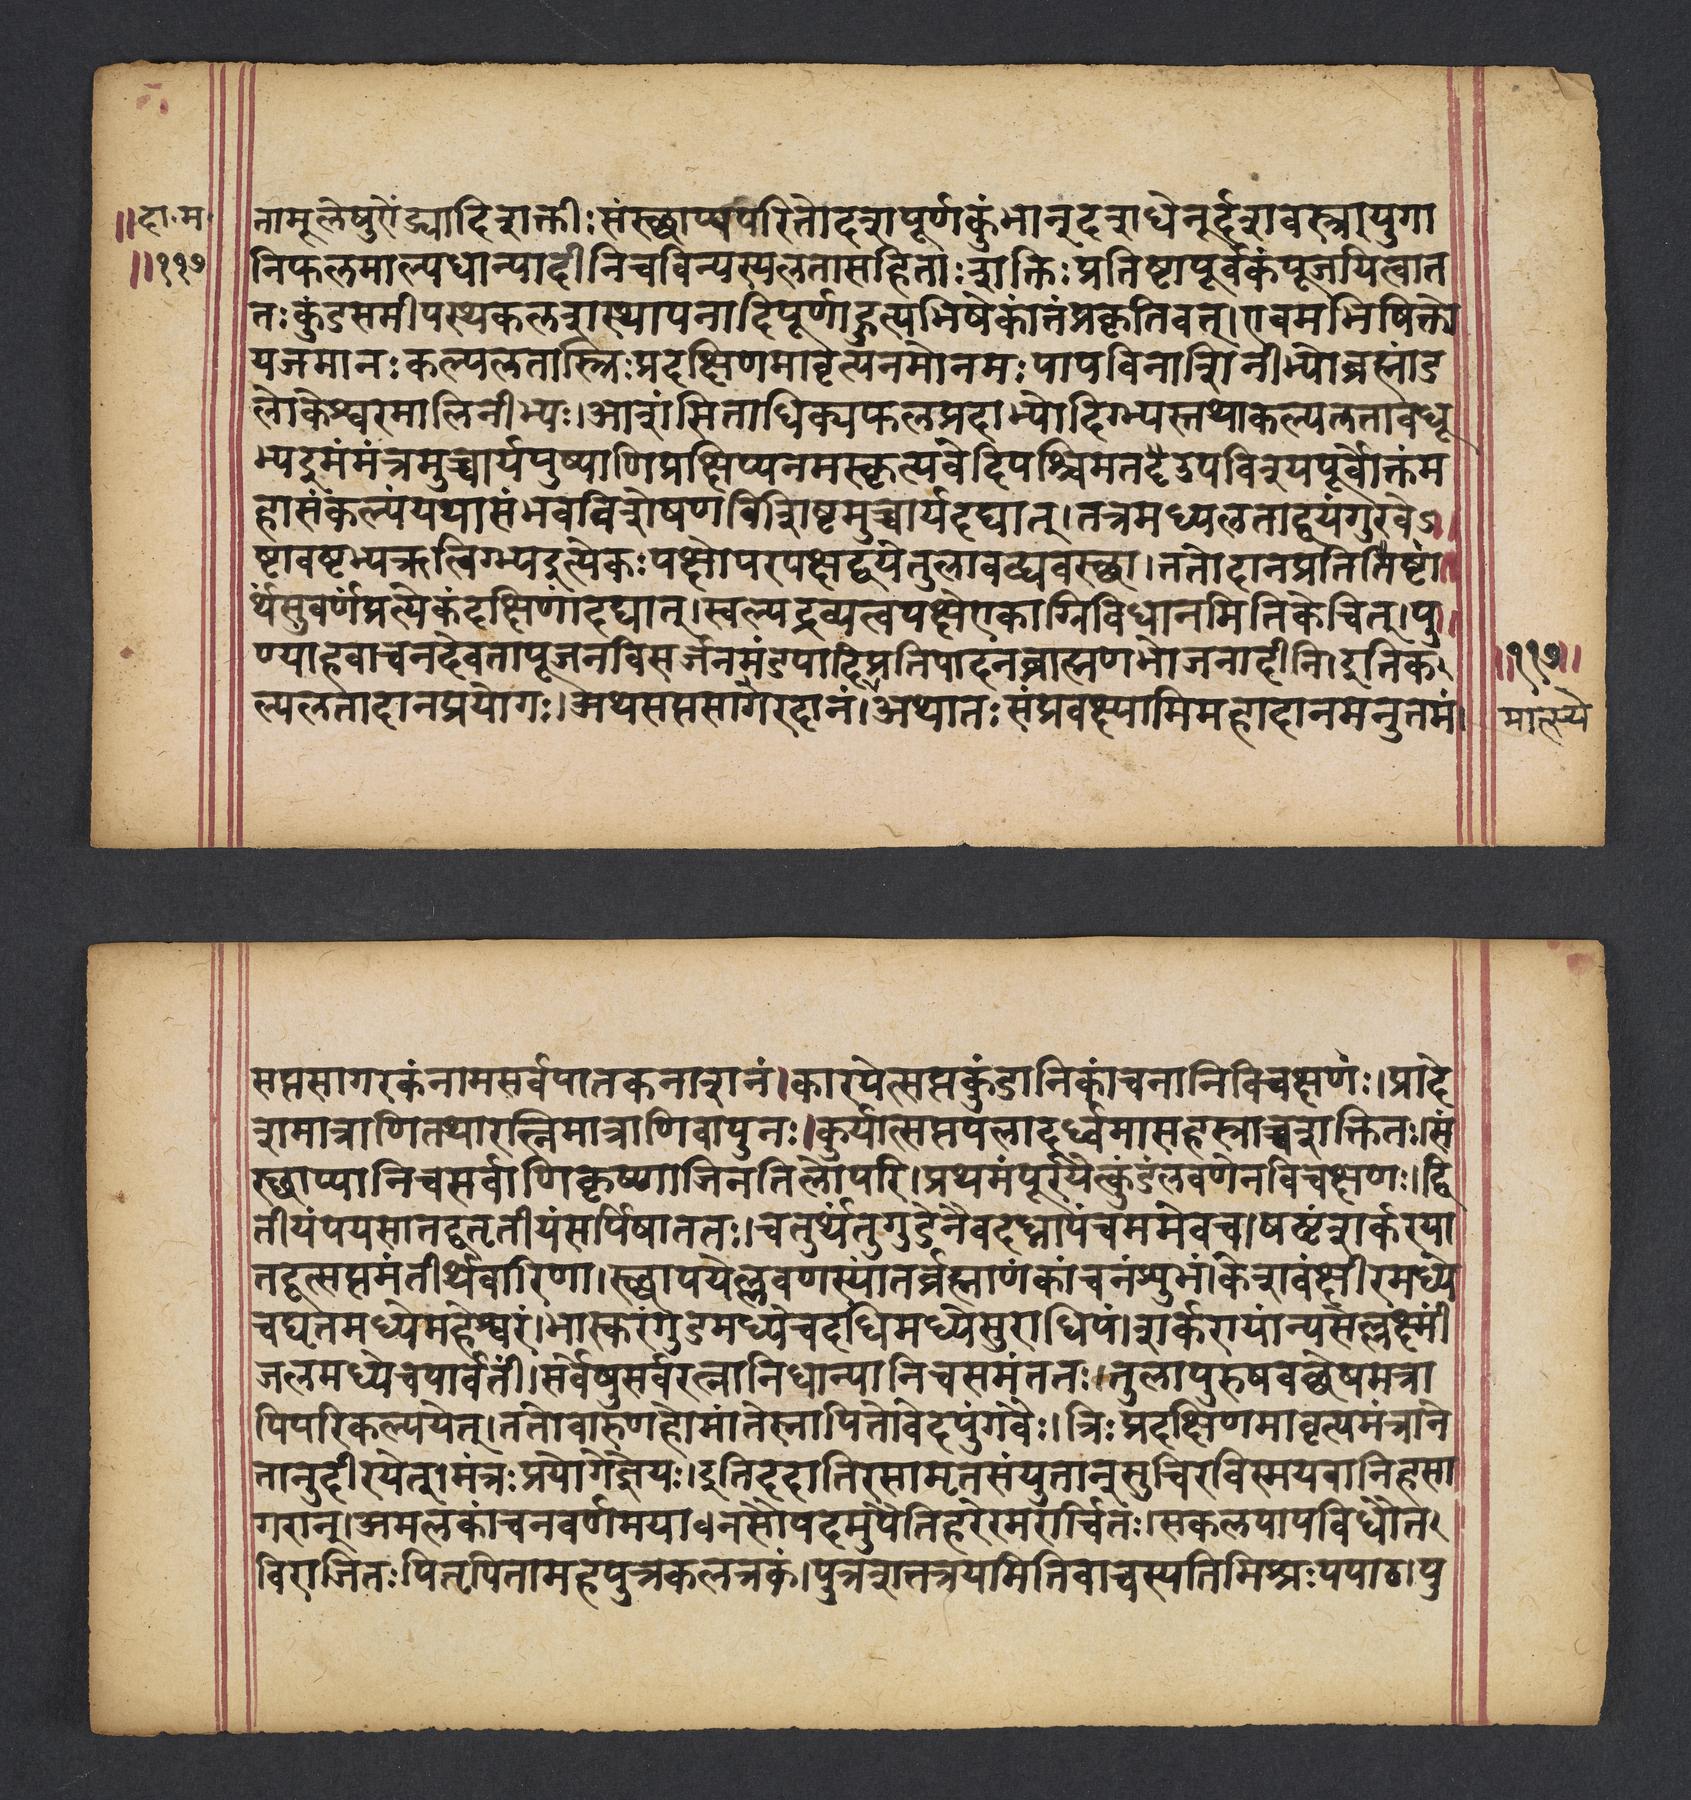 ॥दा.म.
॥११७
नामूलेषुऐंद्र्यादिशक्तीःसंस्छाप्यपरितोदशपूर्णकुंभान्दशधेनूर्दशवस्त्रायुगा
निफलमाल्यधान्यादीनिचविन्यस्यलतासहिताःशक्तिःप्रतिष्टापूर्वकंपूजयित्वात
तःकुंडसमीपस्थेकलशस्थापनादिपूर्णाहुत्यभिषेकांतंप्रकृतिवत्।एवमभिषिक्तो
यजमानःकल्पलतास्त्रिःप्रदक्षिणमावृत्यनमोनमःपापविनाशिनीभ्योब्रह्मांड
लोकेश्वरमालिनीभ्यः।आशंसिताधिक्यफलप्रदाभ्योदिग्भ्यस्तथाकल्पलतावधू
भ्यइमंमंत्रमुच्चार्यपुष्पाणिप्रक्षिप्यनमस्कृत्यवेदिपश्चिमतदैउपविश्यपूर्वोक्तंम
हासंकल्पंयथासंभवविशेषणविशिष्टमुच्चार्यदद्यात्।तत्रमध्यलताद्वयंगुरवेऽ
ष्टावष्टभ्यऋत्विग्भ्यइत्येकःपक्षोपरपक्षद्वयेतुलावद्व्यवस्छा।ततोदानप्रतितिष्टां
र्थंसुवर्णंप्रत्येकंदक्षिणांदद्यात्।स्वल्पद्रव्यत्वपक्षेएकाग्निविधानमितिकेचित्।पु
ण्याहवाचनदेवतापूजनविसर्जनमंडपादिप्रतिपादनंब्राह्मणभोजनादीनि।इतिक
ल्पलतादानप्रयोगः।अथसप्तसागरदानं।अथातःसंप्रवक्ष्यामिमहादानमनुत्तमं।
॥११७॥
मात्स्ये
सप्तसागरकंनामसर्वपातकनाशनं।कारयेत्सप्तकुंडानिकांचनानिविचक्षणः।प्रादे
शमात्राणितथारत्निमात्राणिवापुनः।कुर्यात्सप्तपलादूर्ध्वमासहस्त्राच्चशक्तितः।सं
स्छाप्यानिचसर्वाणिकृष्णाजिनतिलोपरि।प्रथमंपूरयेत्कुंडंलवणेनविचक्षणः।द्वि
तीयंपयसातद्वतृतीयंसर्पिषाततः।चतुर्थंतुगुडेनैवदध्नापंचममेवच।षष्टंशर्करया
तद्वत्सप्तमंतीर्थवारिणा।स्छापयेल्लवणस्यांतर्ब्रह्माणंकांचनंशुभं।केशवंक्षीरमध्ये
चघृतमध्येमहेश्वरं।भास्करंगुडमध्येचदधिमध्येसुराधिपं।शर्करायांन्यसेल्लक्ष्मीं
जलमध्येचपार्वतीं।सर्वेषुसर्वरत्नानिधान्यानिचसमंततः।तुलापुरुषवच्छेषमत्रा
पिपरिकल्पयेत्।ततोवारुणहोमांतेस्नापितोवेदपुंगवैः।त्रिःप्रदक्षिणमावृत्यमंत्राने
तानुदीरयेत्।मंत्रःप्रयोगेज्ञेयः।इतिददातिरसामृतसंयुतान्सुचिरविस्मयवानिहसा
गरान्।अमलकांचनवर्णमयाधनसौपदमुपैतिहरेरमरार्चितः।सकलपापविधौत
विराजितःपितृपितामहपुत्रकलत्रकं।पुत्रशतत्रयमितिवाचस्पतिमिश्रःपपाठ।पु